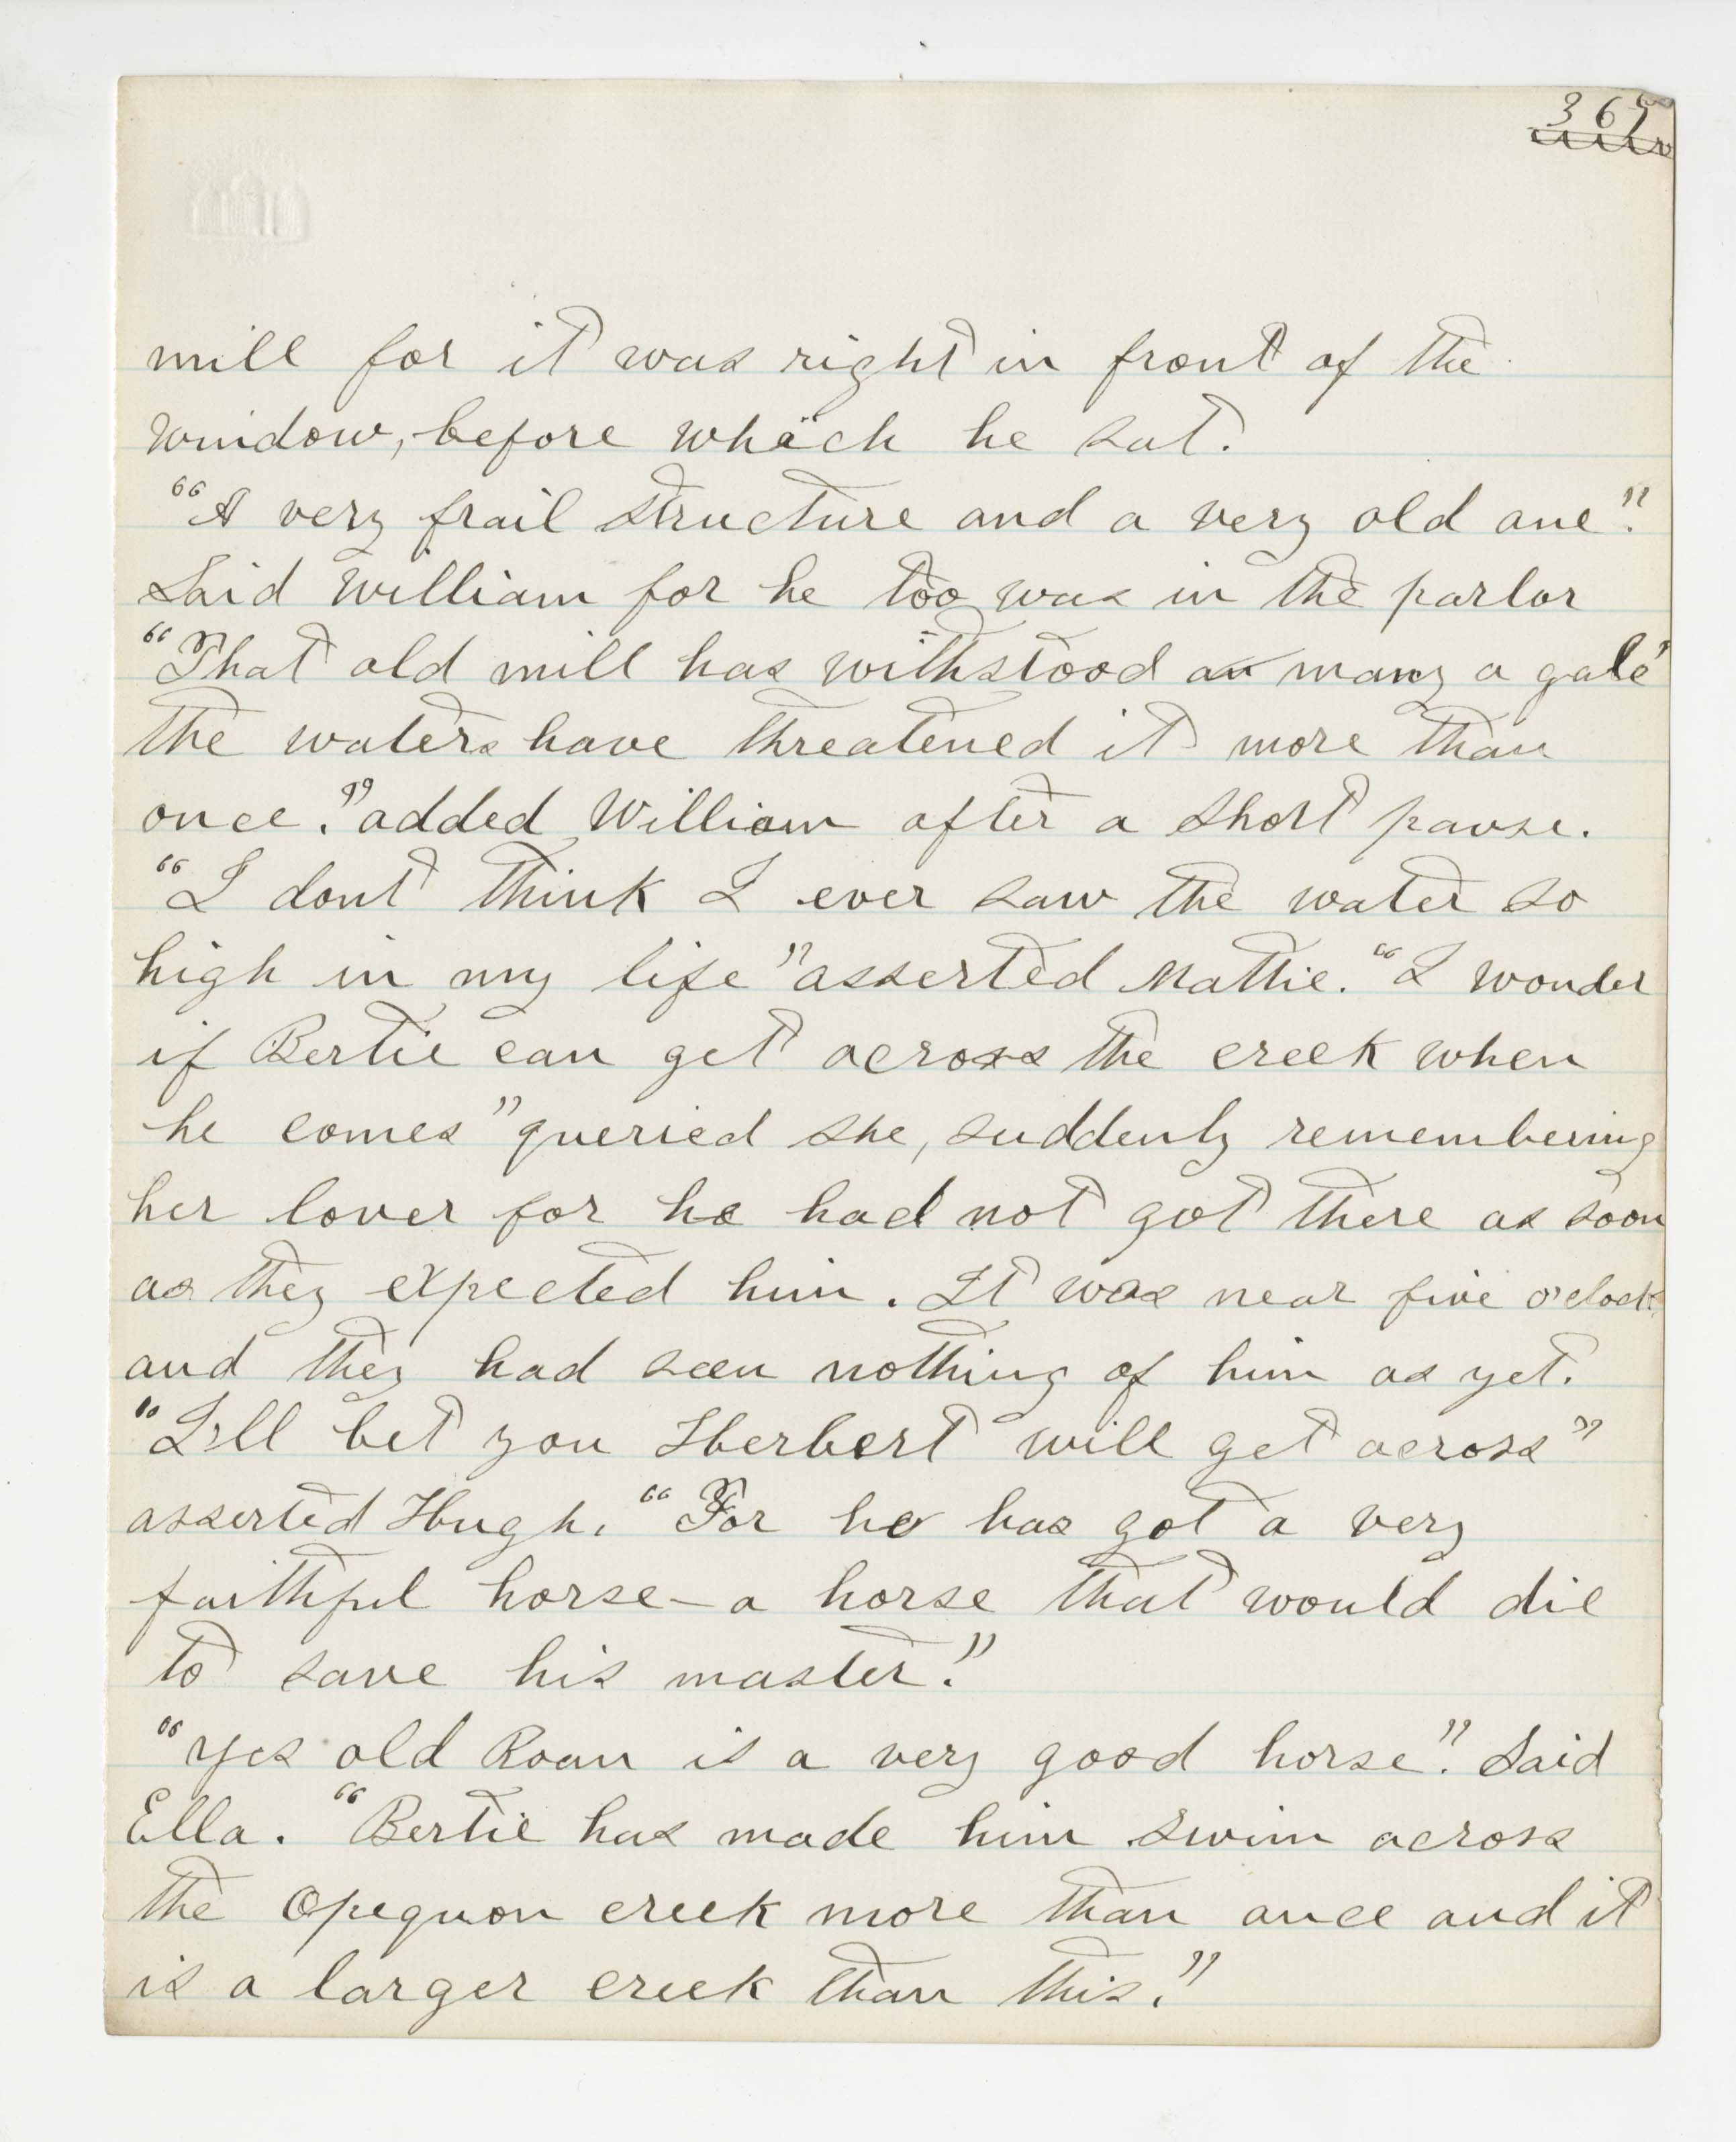 365
mill for it was right in front of the
window, before which he sat.
"A very frail structure and a very old one".
Said William for he too was in the parlor
"That old mill has withstood many a gale"
the waters have threatened it more than
once." added William after a short pause.
"I dont think I ever saw the water so
high in my life" asserted Mattie. "I wonder
if Bertie can get across the creek when
he comes" queried she, suddenly remembering
her lover for he had not got there as soon
as they expected him. It was near five o'clock
and they had seen nothing of him as yet.
"I'll bet you Herbert will get across"
asserted Hugh. "For he has got a very
faithful horse - a horse that would die
to save his master."
"Yes old Roan is a very good horse". Said
Ella. "Bertie has made him swim across
the Opequon creek more than once and it
is a larger creek than this."